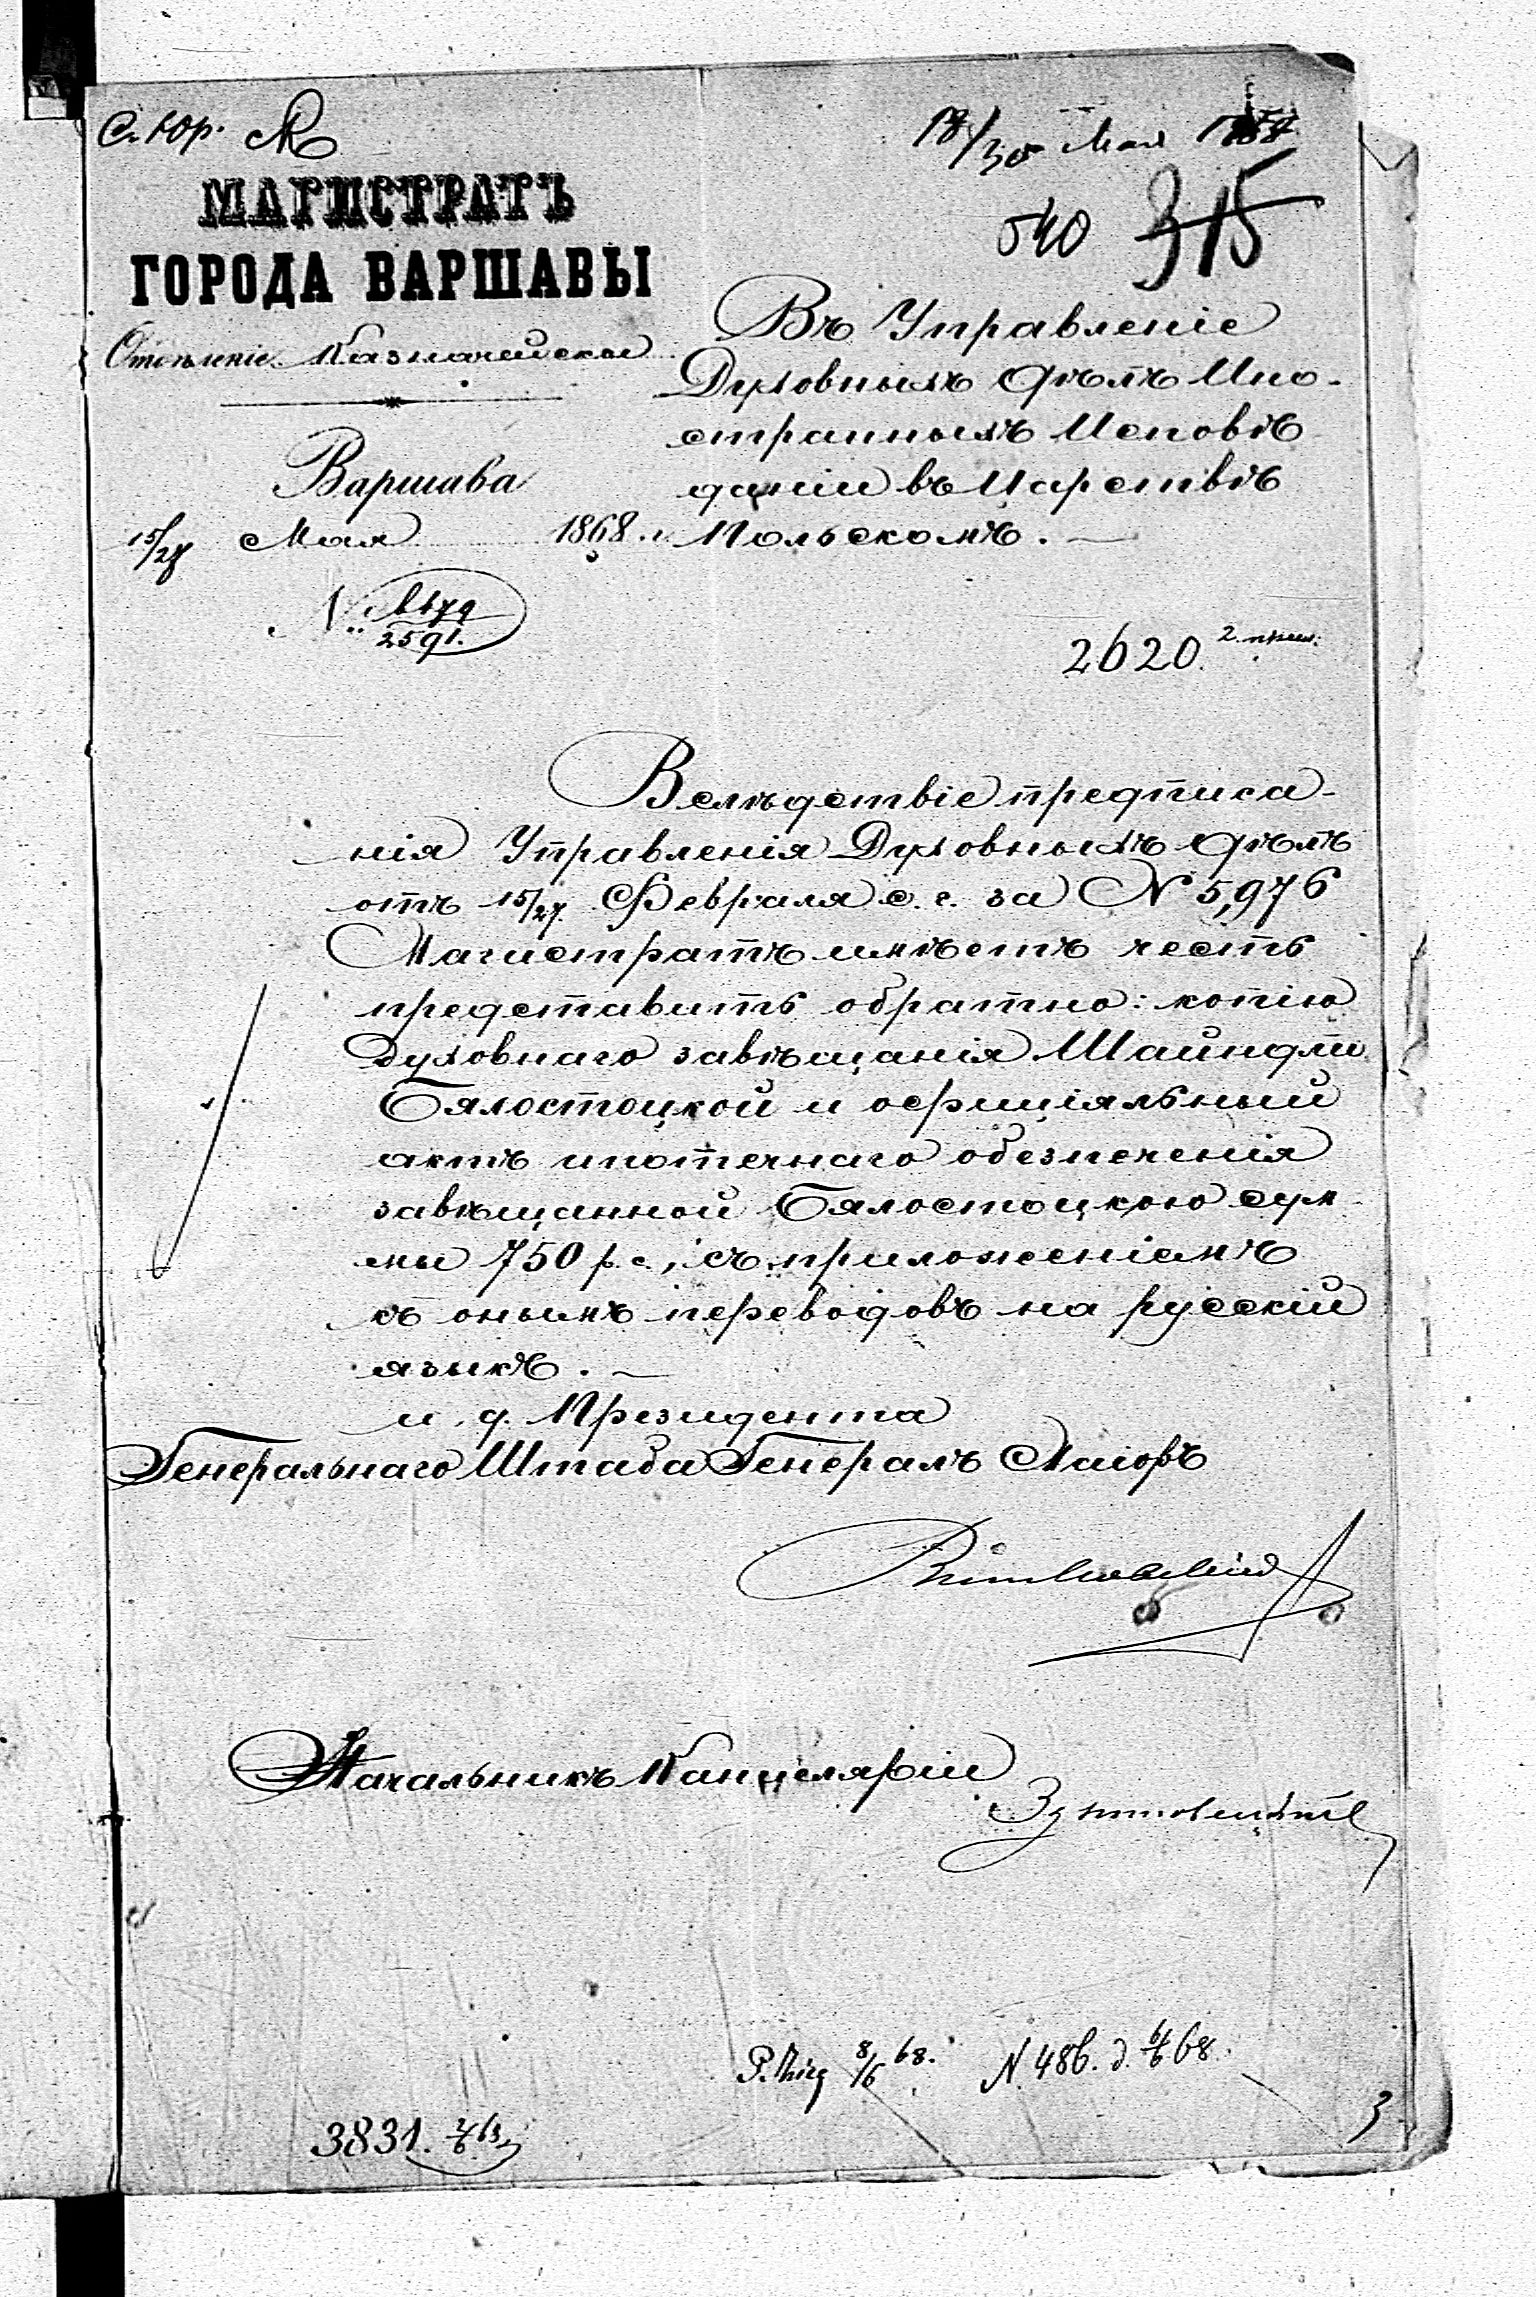 С. Юр.
18/30 Мая 1868
МАГИСТРАТЪ
ГОРОДА ВАРШАВЫ
540 315
Отдѣленіе Казначейское
Въ Управленіе
Духовныхъ Дѣлъ Ино-
странныхъ Исповѣ
даній въ Царствѣ
Польскомъ. —
Варшава
15/27 Мая 1868 г.
№
2591.
2620. 2. прил.
Вслѣдствіе предписа-
нія Управленія Духовныхъ Дѣлъ
отъ 15/27 Февраля с. г. за № 5,976
Магистратъ имѣетъ честь
представить обратно: копію
духовнаго завѣщанія Шайндли
Бялостоцкой и офиціяльный
актъ ипотечнаго обезпеченія
завѣщанной Бялостоцкою сум
мы 750 р. с., съ приложеніемъ
къ онымъ переводовъ на русскій
языкъ. —
и. д. Президента
Генеральнаго Штаба Генералъ Маіоръ
Начальникъ Канцеляріи
8/6 68. N. 486. д. 68.
3831.
3